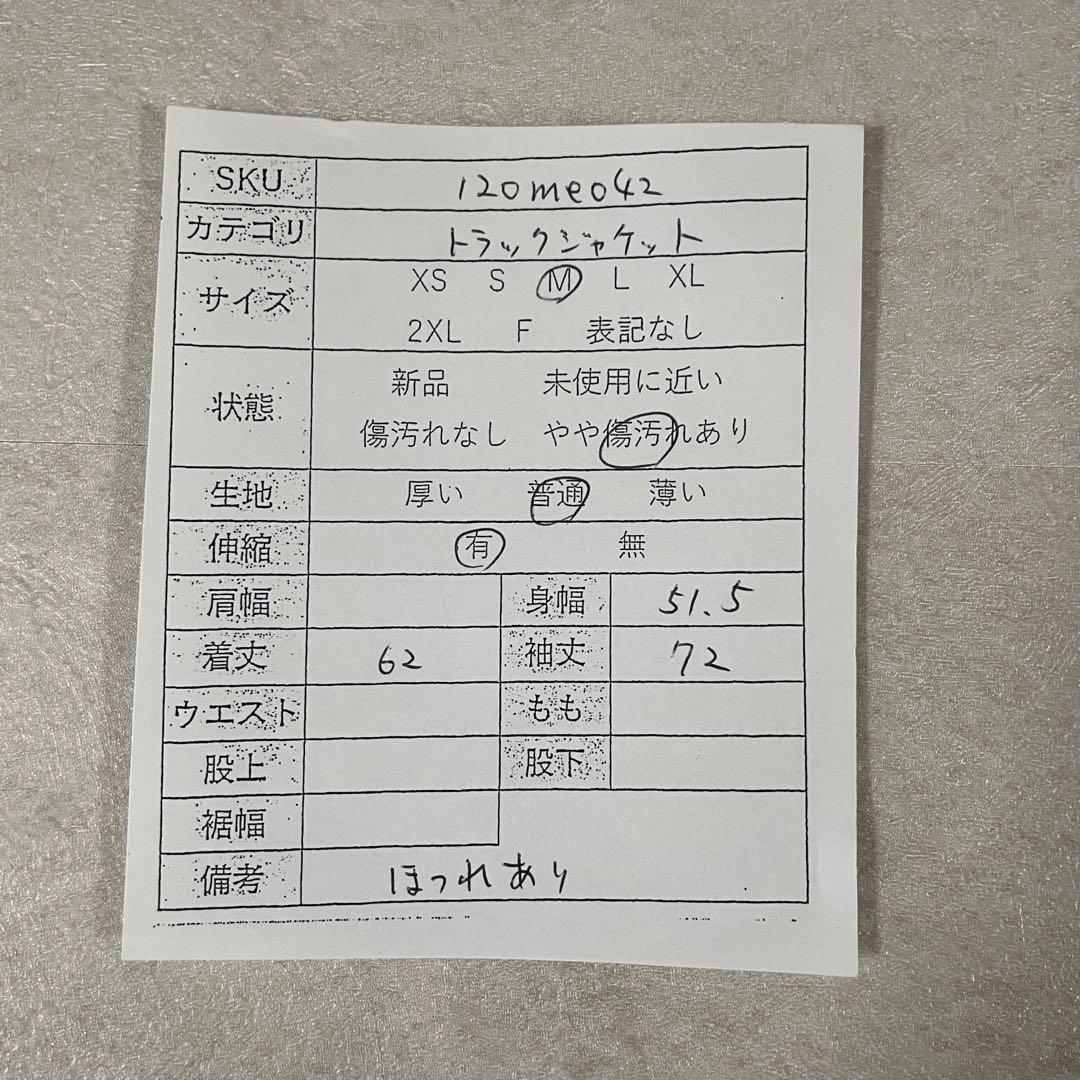 SKU 120me042
カテゴリ トラックジャケット
サイズ XS S M L XL
2XL F 表記なし
状態 新品 未使用に近い
傷汚れなし やや傷汚れあり
生地 厚い 普通 薄い
伸縮 有 無
肩幅 身幅 51.5
着丈 62 袖丈 72
ウエスト もも
股上 股下
裾幅
備考 ほつれあり